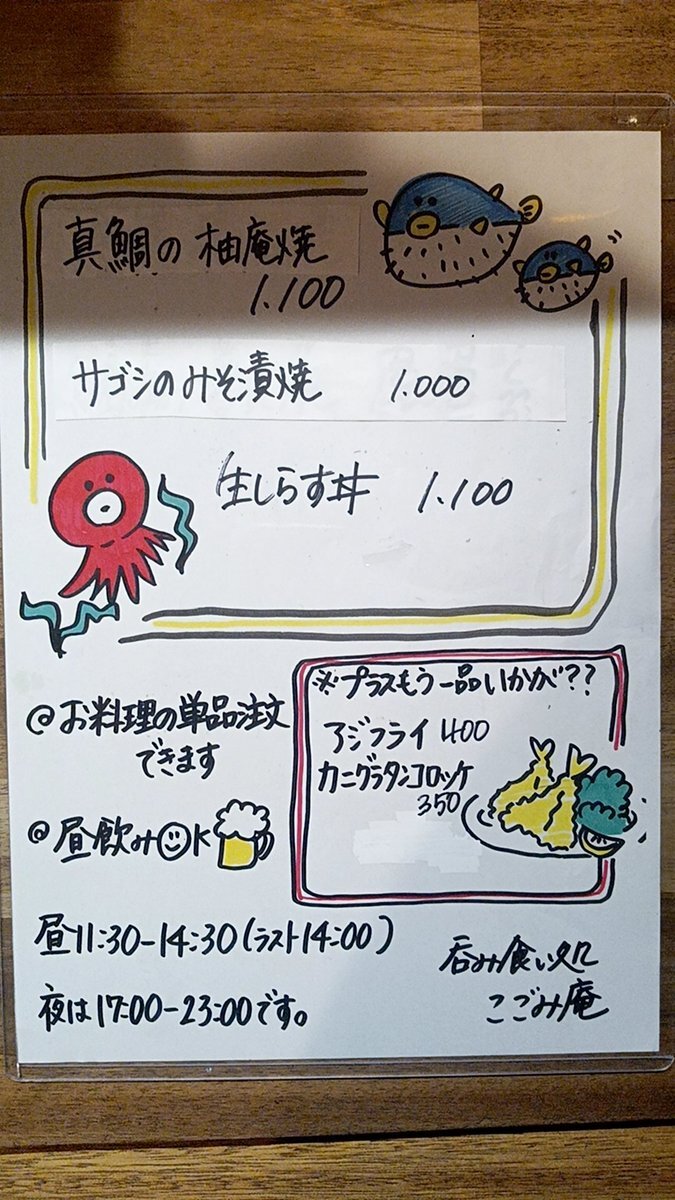 真鯛の柚庵焼
1.100
サゴシのみそ漬焼 1.000
生しらす丼 1.100
@お料理の単品注文
できます
@昼飲みOK
※プラスもう一品いかが??
アジフライ 400
カニグラタンコロッケ
350
昼11:30-14:30(ラスト14:00)
夜は17:00-23:00です。
呑み食い処
こごみ庵